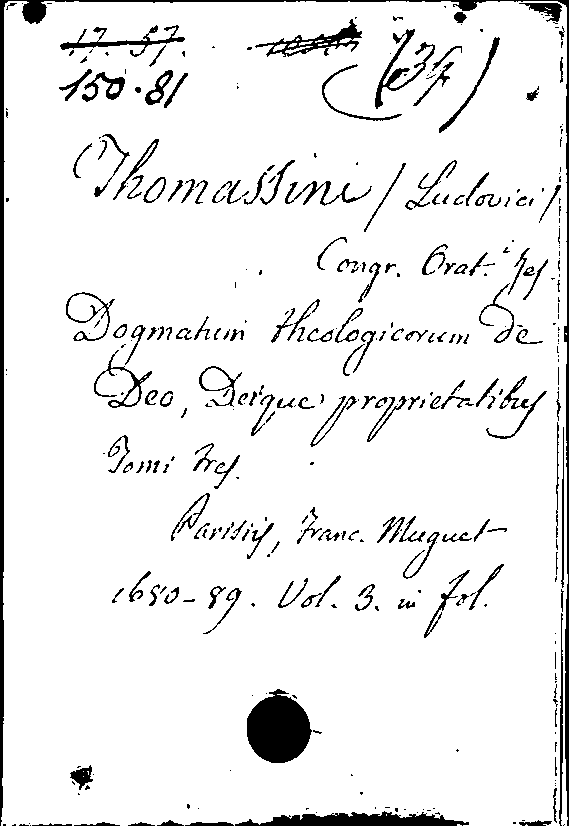 17. 57.
150.81 (34)
Thomassini / Ludovici /
Congr. Orat. Jes.
Dogmatum theologicorum de
Deo, Deique proprietatibus
Tomi tres.
Parisiis, Franc. Muguet
1680-89. Vol. 3. in fol.